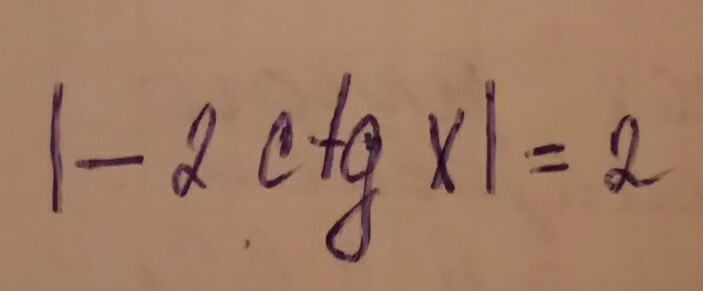 |- 2 ctg x| = 2